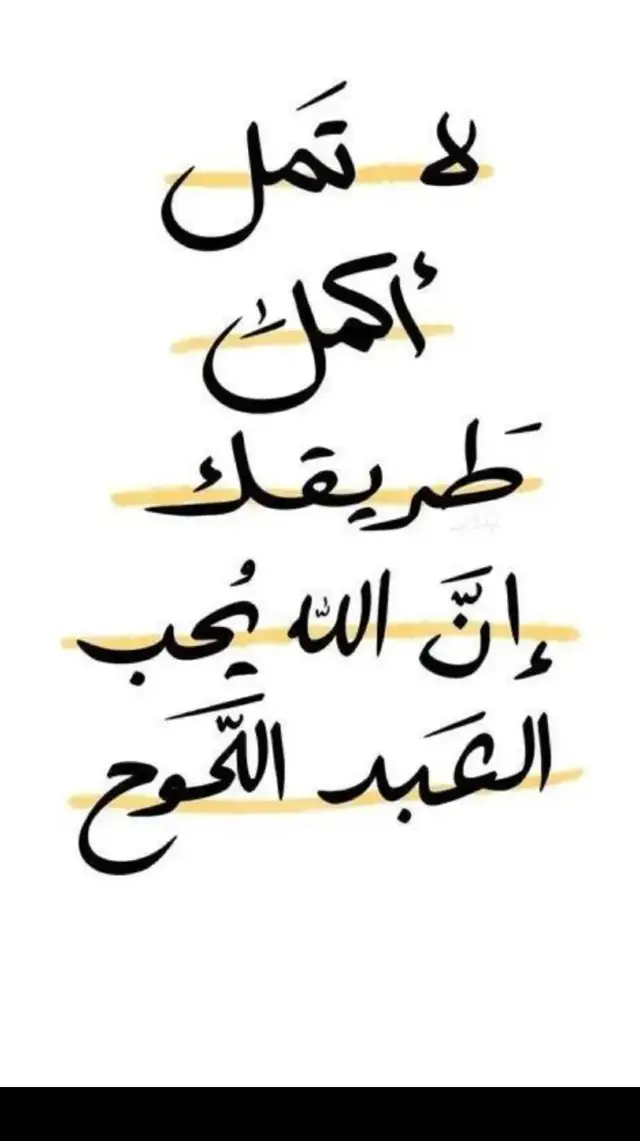 لا تَمل
أكملَ
طَريقك
إنَّ الله يُحب
العَبد اللَّحوح